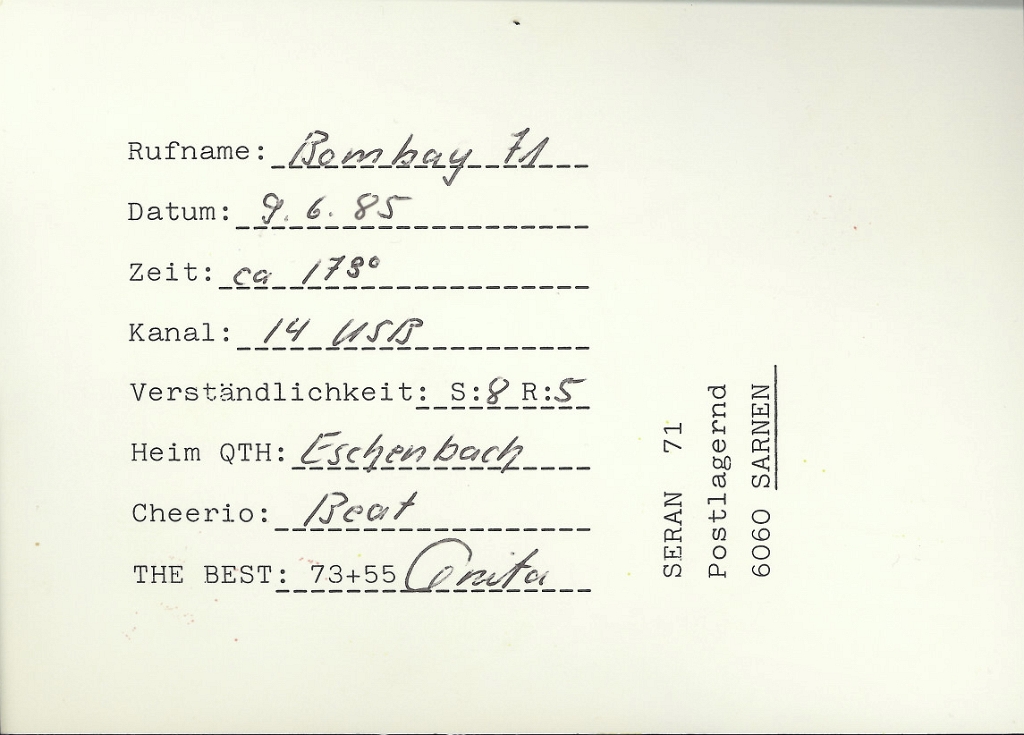 Rufname: Bombay 71
Datum: 9.6.85
Zeit: ca 17³⁰
Kanal: 14 USB
Verständlichkeit: S:8 R:5
Heim QTH: Eschenbach
Cheerio: Beat
THE BEST: 73+55 Anita
SERAN 71
Postlagernd
6060 SARNEN